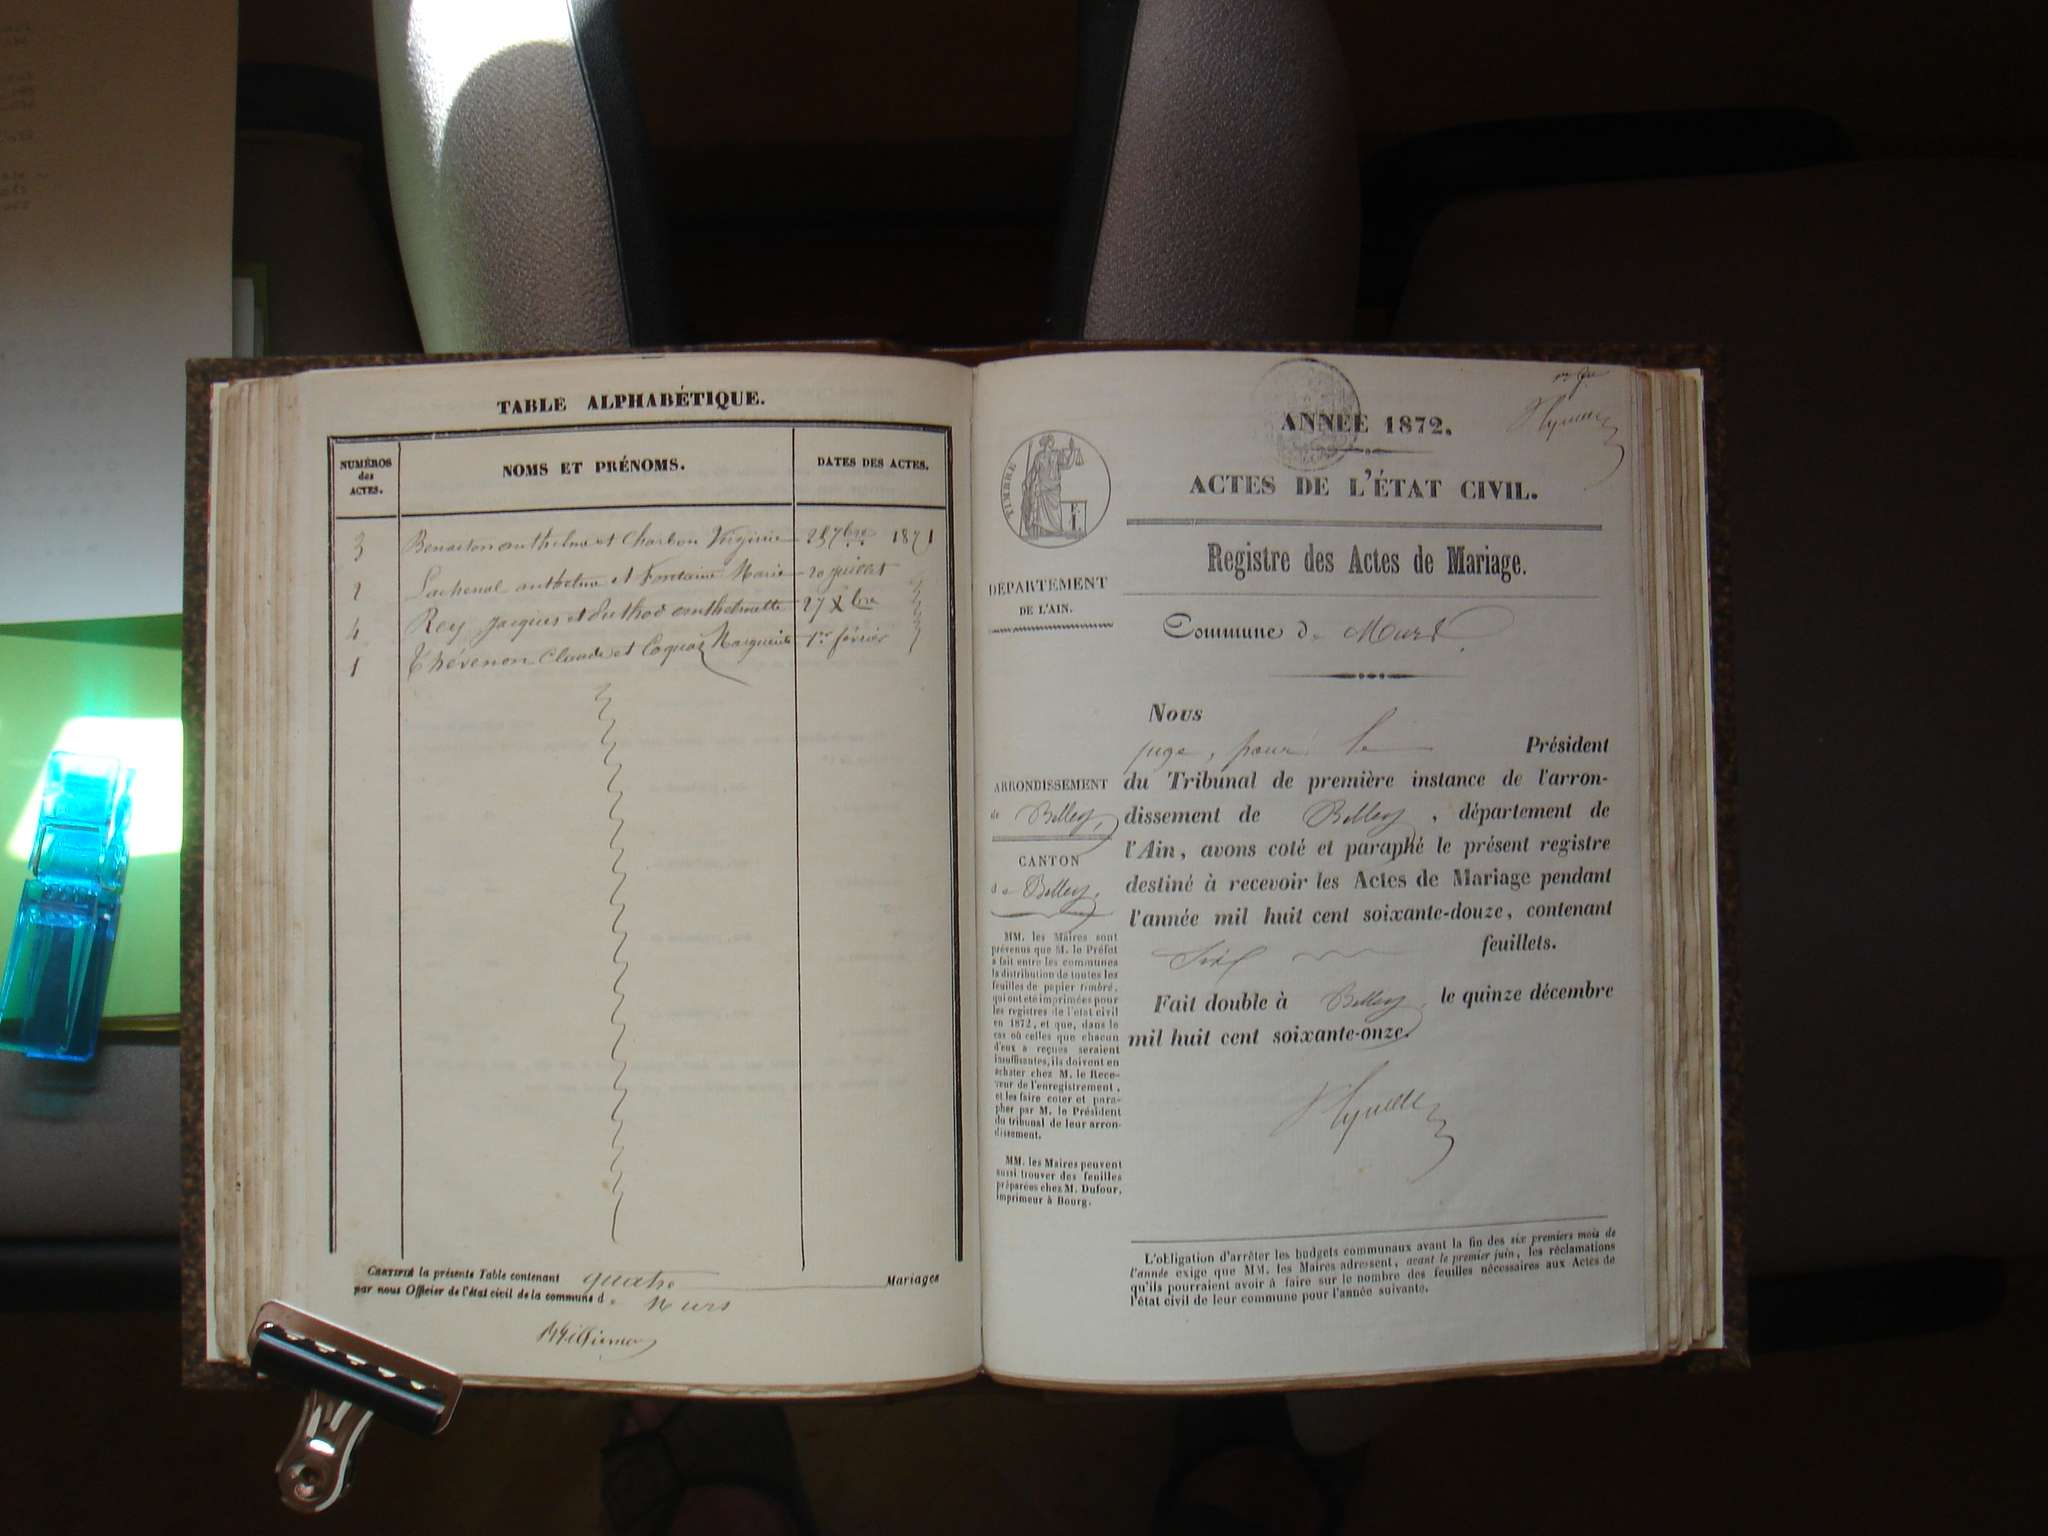 TABLE ALPHABÉTIQUE.
NUMÉROS
des
ACTES.
NOMS ET PRÉNOMS.
DATES DES ACTES.
3 Benoiton anthelme et Charbon Virginie 25 7bre 1871
2 Lachenal anthelme et Fontaine Marie 20 juillet
4 Rey Jacques et duthod anthelmette 27 Xbre
1 Thévenon Claude et Coquaz Marguerite 1er février
CERTIFIÉ la présente Table contenant quatre Mariages
par nous Officier de l'état civil de la commune de Murs
ANNÉE 1872.
ACTES DE L'ÉTAT CIVIL.
Registre des Actes de Mariage.
TIMBRE
DÉPARTEMENT
DE L'AIN.
Commune de Murs
Nous
juge, pour le Président
ARRONDISSEMENT
de Belley,
CANTON
de Belley,
du Tribunal de première instance de l'arron-
dissement de Belley, département de
l'Ain, avons coté et paraphé le présent registre
destiné à recevoir les Actes de Mariage pendant
l'année mil huit cent soixante-douze, contenant
six feuillets.
Fait double à Belley, le quinze décembre
mil huit cent soixante-onze.
MM. les Maires sont
prévenus que M. le Préfet
a fait entre les communes
la distribution de toutes les
feuilles de papier timbré,
qui ont été imprimées pour
les registres de l'état civil
en 1872, et que, dans le
cas où celles que chacun
d'eux a reçues seraient
insuffisantes, ils doivent en
acheter chez M. le Rece-
veur de l'enregistrement,
et les faire coter et para-
pher par M. le Président
du tribunal de leur arron-
dissement.
MM. les Maires peuvent
aussi trouver des feuilles
préparées chez M. Dufour,
imprimeur à Bourg.
L'obligation d'arrêter les budgets communaux avant la fin des six premiers mois de
l'année exige que MM. les Maires adressent, avant le premier juin, les réclamations
qu'ils pourraient avoir à faire sur le nombre des feuilles nécessaires aux Actes de
l'état civil de leur commune pour l'année suivante.